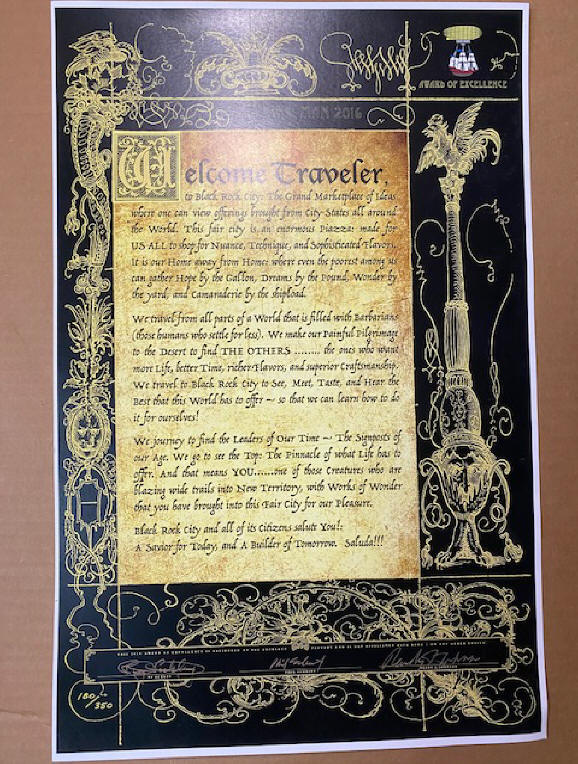 AWARD OF EXCELLENCE
MAN 2016
Welcome Traveler,
to Black Rock City: The Grand Marketplace of Ideas
where one can view offerings brought from City-States all around
the World. This fair city is an enormous Piazza: made for
US ALL to shop for Nuance, Technique, and Sophisticated Flavors.
It is our Home away from Home: where even the poorest among us
can gather Hope by the Gallon, Dreams by the Pound, Wonder by
the yard, and Camaraderie by the shipload.
We travel from all parts of a World that is filled with Barbarians
(those humans who settle for less). We make our Painful Pilgrimage
to the Desert to find THE OTHERS ........ the ones who want
more Life, better Time, richer Flavors, and superior Craftsmanship.
We travel to Black Rock City to See, Meet, Taste, and Hear the
Best that this World has to offer ~ so that we can learn how to do
it for ourselves!
We journey to find the Leaders of Our Time ~ The Signposts of
our Age. We go to see the Top: The Pinnacle of what Life has to
offer. And that means YOU......one of those Creatures who are
blazing wide trails into New Territory, with Works of Wonder
that you have brought into this Fair City for our Pleasure.
Black Rock City and all of its Citizens salute You!:
A Savior for Today, and A Builder of Tomorrow. Saluda!!!
180/350